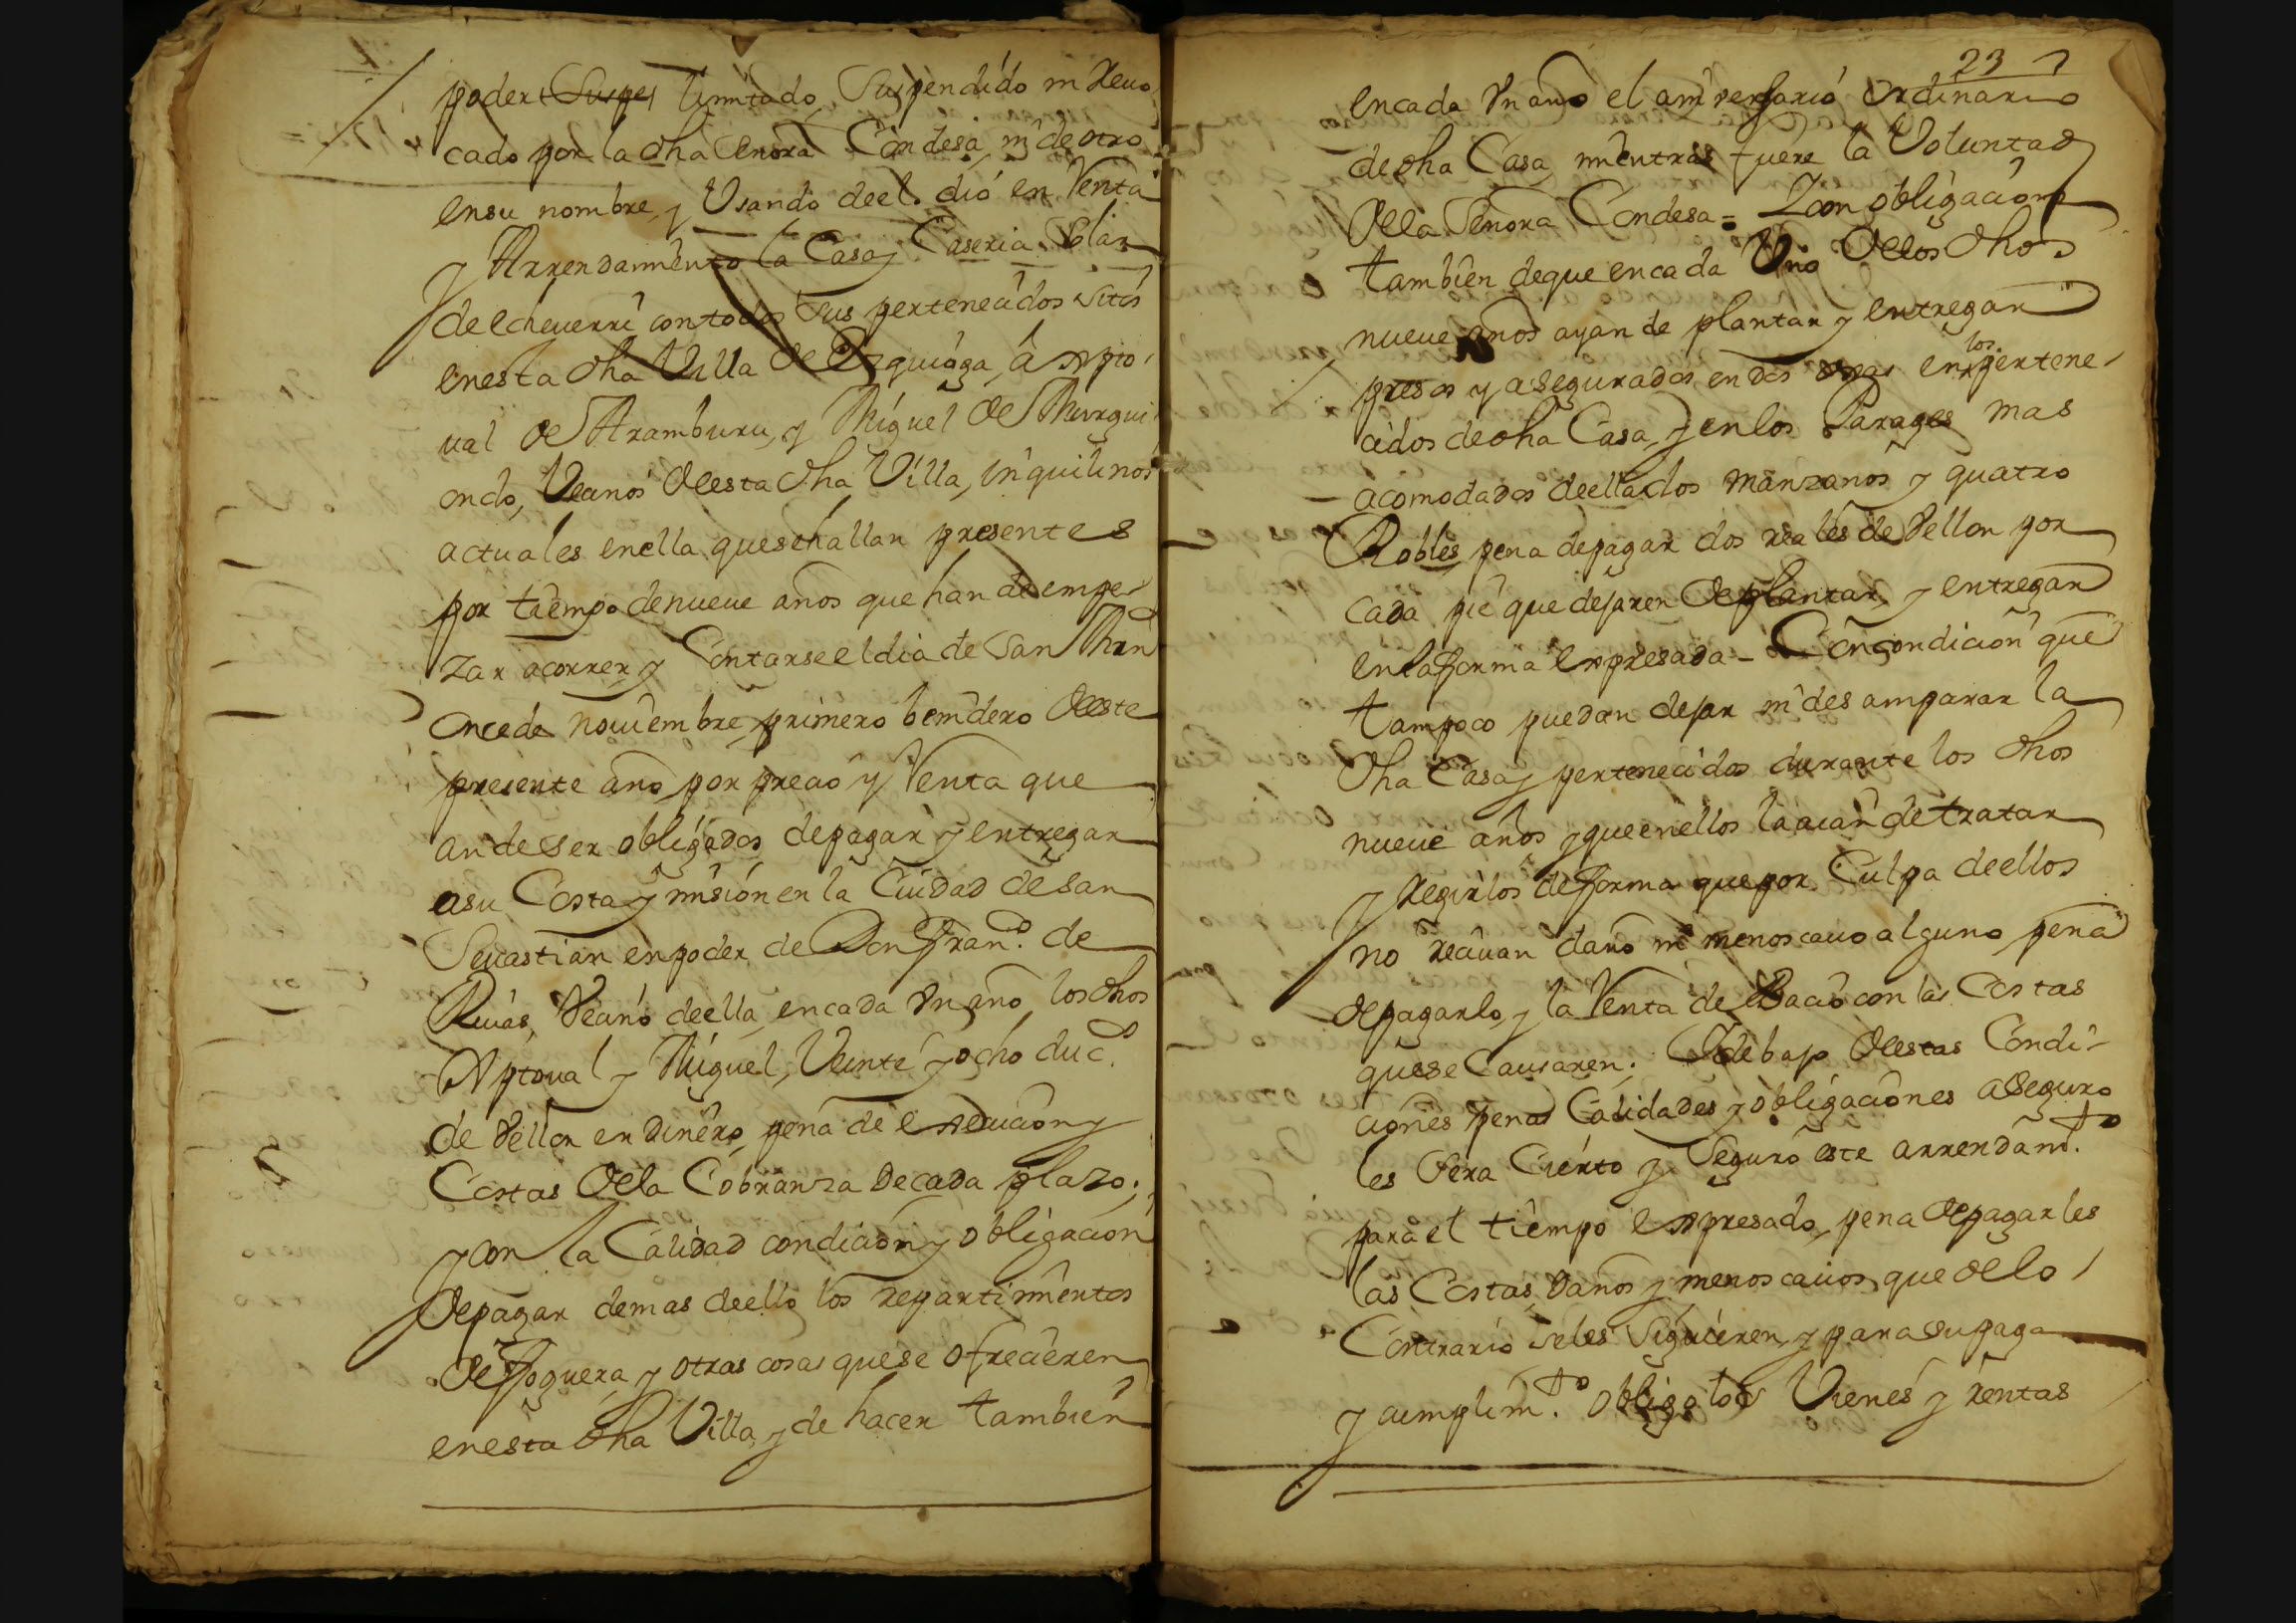 poder suspe limitado, Suspendido ni Reuo,
cado por la dha Señora Condesa, ni de otro
en su nombre, y Usando de el dió en Renta
y Arrendamiento la Casa y Caseria Solar
de echeuerri con todos sus pertenecidos sitos
en esta dha Villa de Ezquioga, á Xpto,
ual de Aramburu, y Miguel de Murgui
ondo, Vecinos de esta dha Villa, inquilinos
actuales en ella que se hallan presentes
por tiempo de nueue años que han de empe,
zar a correr y Contarse el dia de San Mrn
once de nouiembre primero benidero de este
presente año por precio y Renta que
an de ser obligados de pagar y entregar
a su Costa y mision en la Ciudad de San
Seuastian en poder de Don Fran.co de
Riuas, Vecino de ella en cada Un año los dhos
Xptoual y Miguel, Veinte y ocho duc.s
de Vellon en dinero pena de execucion y
Costas de la Cobranza de cada plazo;
y con la Calidad condicion y obligacion
de pagar demas de ello los repartimientos
de foguera, y otras cosas que se ofrecieren
en esta dha Villa, y de hacer tambien
23
en cada Un año el aniversario ordinario
de dha Casa, mientras fuere la Voluntad
de la Señora Condesa = Y con obligacion
tambien de que en cada Uno de los dhos
nueue años ayan de plantar y entregar
presos y asegurados en dos ojas en los pertene,
cidos de dha Casa, y en los Parages mas
acomodados de ella dos manzanos y quatro
Robles pena de pagar dos reales de Vellon por
cada pie que dejaren de plantar, y entregar
en la forma expresada - Con condicion que
tampoco puedan dejar ni desamparar la
dha Casa y pertenecidos durante los dhos
nueue años y que en ellos la aian de tratar
y regirlos de forma que por Culpa de ellos
no reciuan daño ni menoscauo alguno pena
de pagarlo, y la Renta de Bacio con las Costas
que se Causaren; Y debajo de estas Condi-
ciones penas Calidades y obligaciones aseguro
les sera Cierto y Seguro este arrendam.to
para el tiempo expresado, pena de pagarles
las Costas, daños y menoscauos, que de lo
Contrario se les Siguieren, y para su paga
y cumplim.to obligo los Vienes y rentas